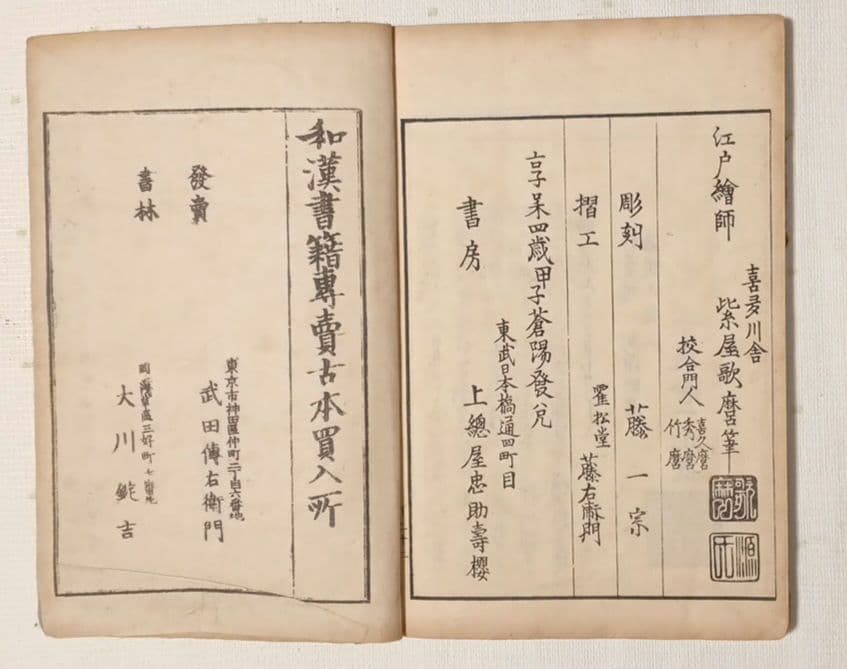 江戸繪師
喜多川舎
紫屋歌麿筆
校合門人
喜久麿
秀麿
竹麿
歌麿
源氏
彫刻 藤一宗
摺工 霍松堂 藤右衛門
享和四歳甲子蒼陽發兌
東武日本橋通四町目
書房 上總屋忠助壽櫻
和漢書籍專賣古本買入所
發賣
書林
東京市神田區仲町二丁目六番地
武田傳右衛門
同淺草區三好町七番地
大川錠吉